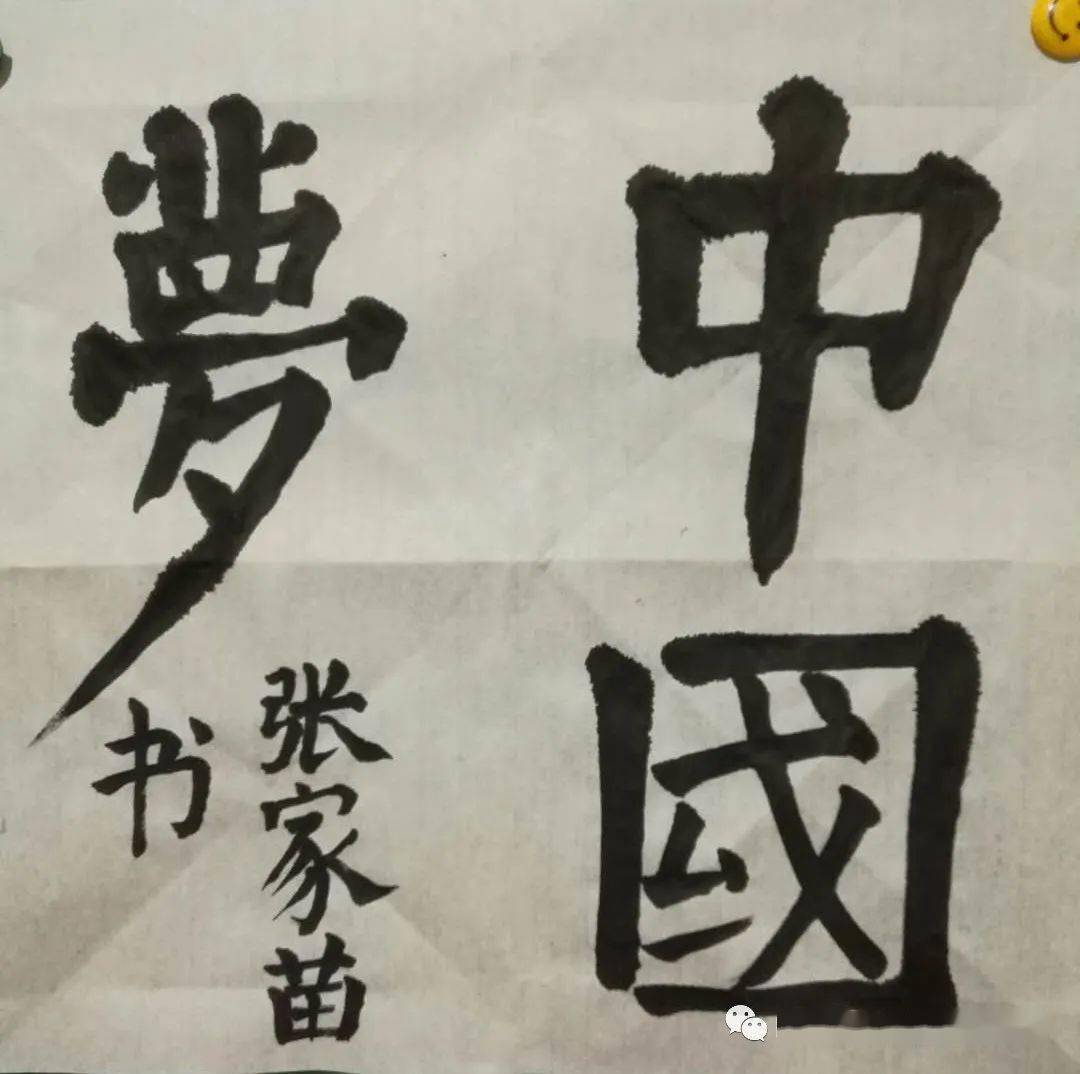 中國
夢
张家苗
书